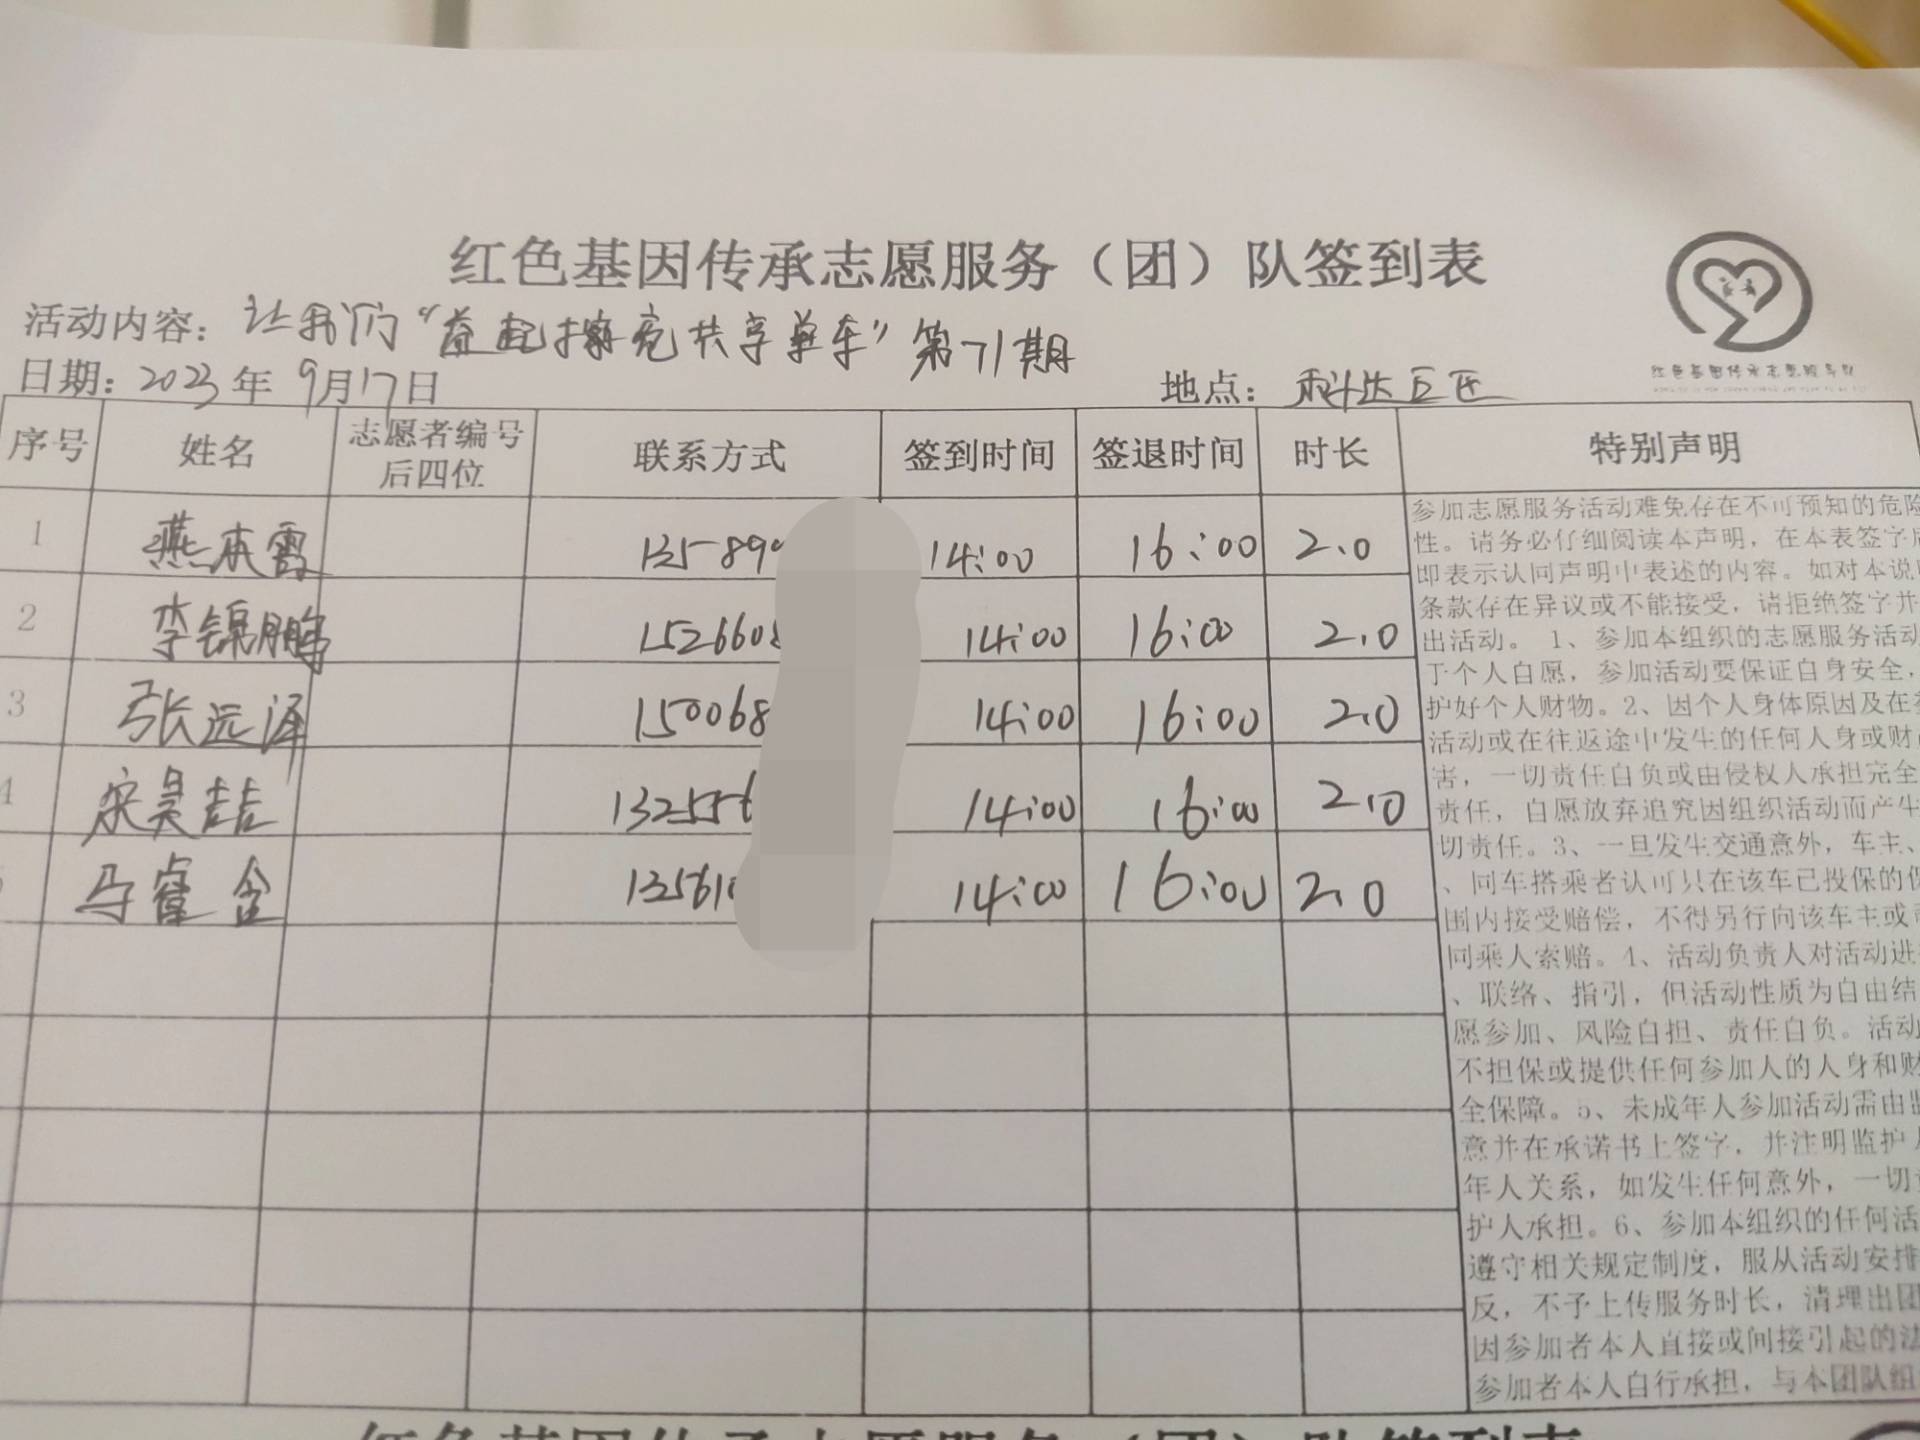 红色基因传承志愿服务（团）队签到表
活动内容：让我们“益起擦亮共享单车”第71期
日期：2023年9月17日 地点：科达巨匠
红色基因传承志愿服务队
序号 姓名 志愿者编号后四位 联系方式 签到时间 签退时间 时长 特别声明
1 燕本霞 135890 14:00 16:00 2.0
2 李锦鹏 1526608 14:00 16:00 2.0
3 张远泽 150068 14:00 16:00 2.0
4 宋昊喆 132556 14:00 16:00 2.0
5 马睿含 13561 14:00 16:00 2.0
参加志愿服务活动难免存在不可预知的危险
性。请务必仔细阅读本声明，在本表签字后
即表示认同声明中表述的内容。如对本说明
条款存在异议或不能接受，请拒绝签字并
出活动。 1、参加本组织的志愿服务活动
于个人自愿，参加活动要保证自身安全，
护好个人财物。2、因个人身体原因及在参
活动或在往返途中发生的任何人身或财产
害，一切责任自负或由侵权人承担完全
责任，自愿放弃追究因组织活动而产生
切责任。3、一旦发生交通意外，车主、
、同车搭乘者认可只在该车已投保的保
围内接受赔偿，不得另行向该车主或司
同乘人索赔。4、活动负责人对活动进
、联络、指引，但活动性质为自由结
愿参加、风险自担、责任自负。活动
不担保或提供任何参加人的人身和财
全保障。5、未成年人参加活动需由监
意并在承诺书上签字，并注明监护人
年人关系，如发生任何意外，一切
护人承担。6、参加本组织的任何活
遵守相关规定制度，服从活动安排
反，不予上传服务时长，清理出团
因参加者本人直接或间接引起的法
参加者本人自行承担，与本团队组
红色基因传承志愿服务（团）队签到表